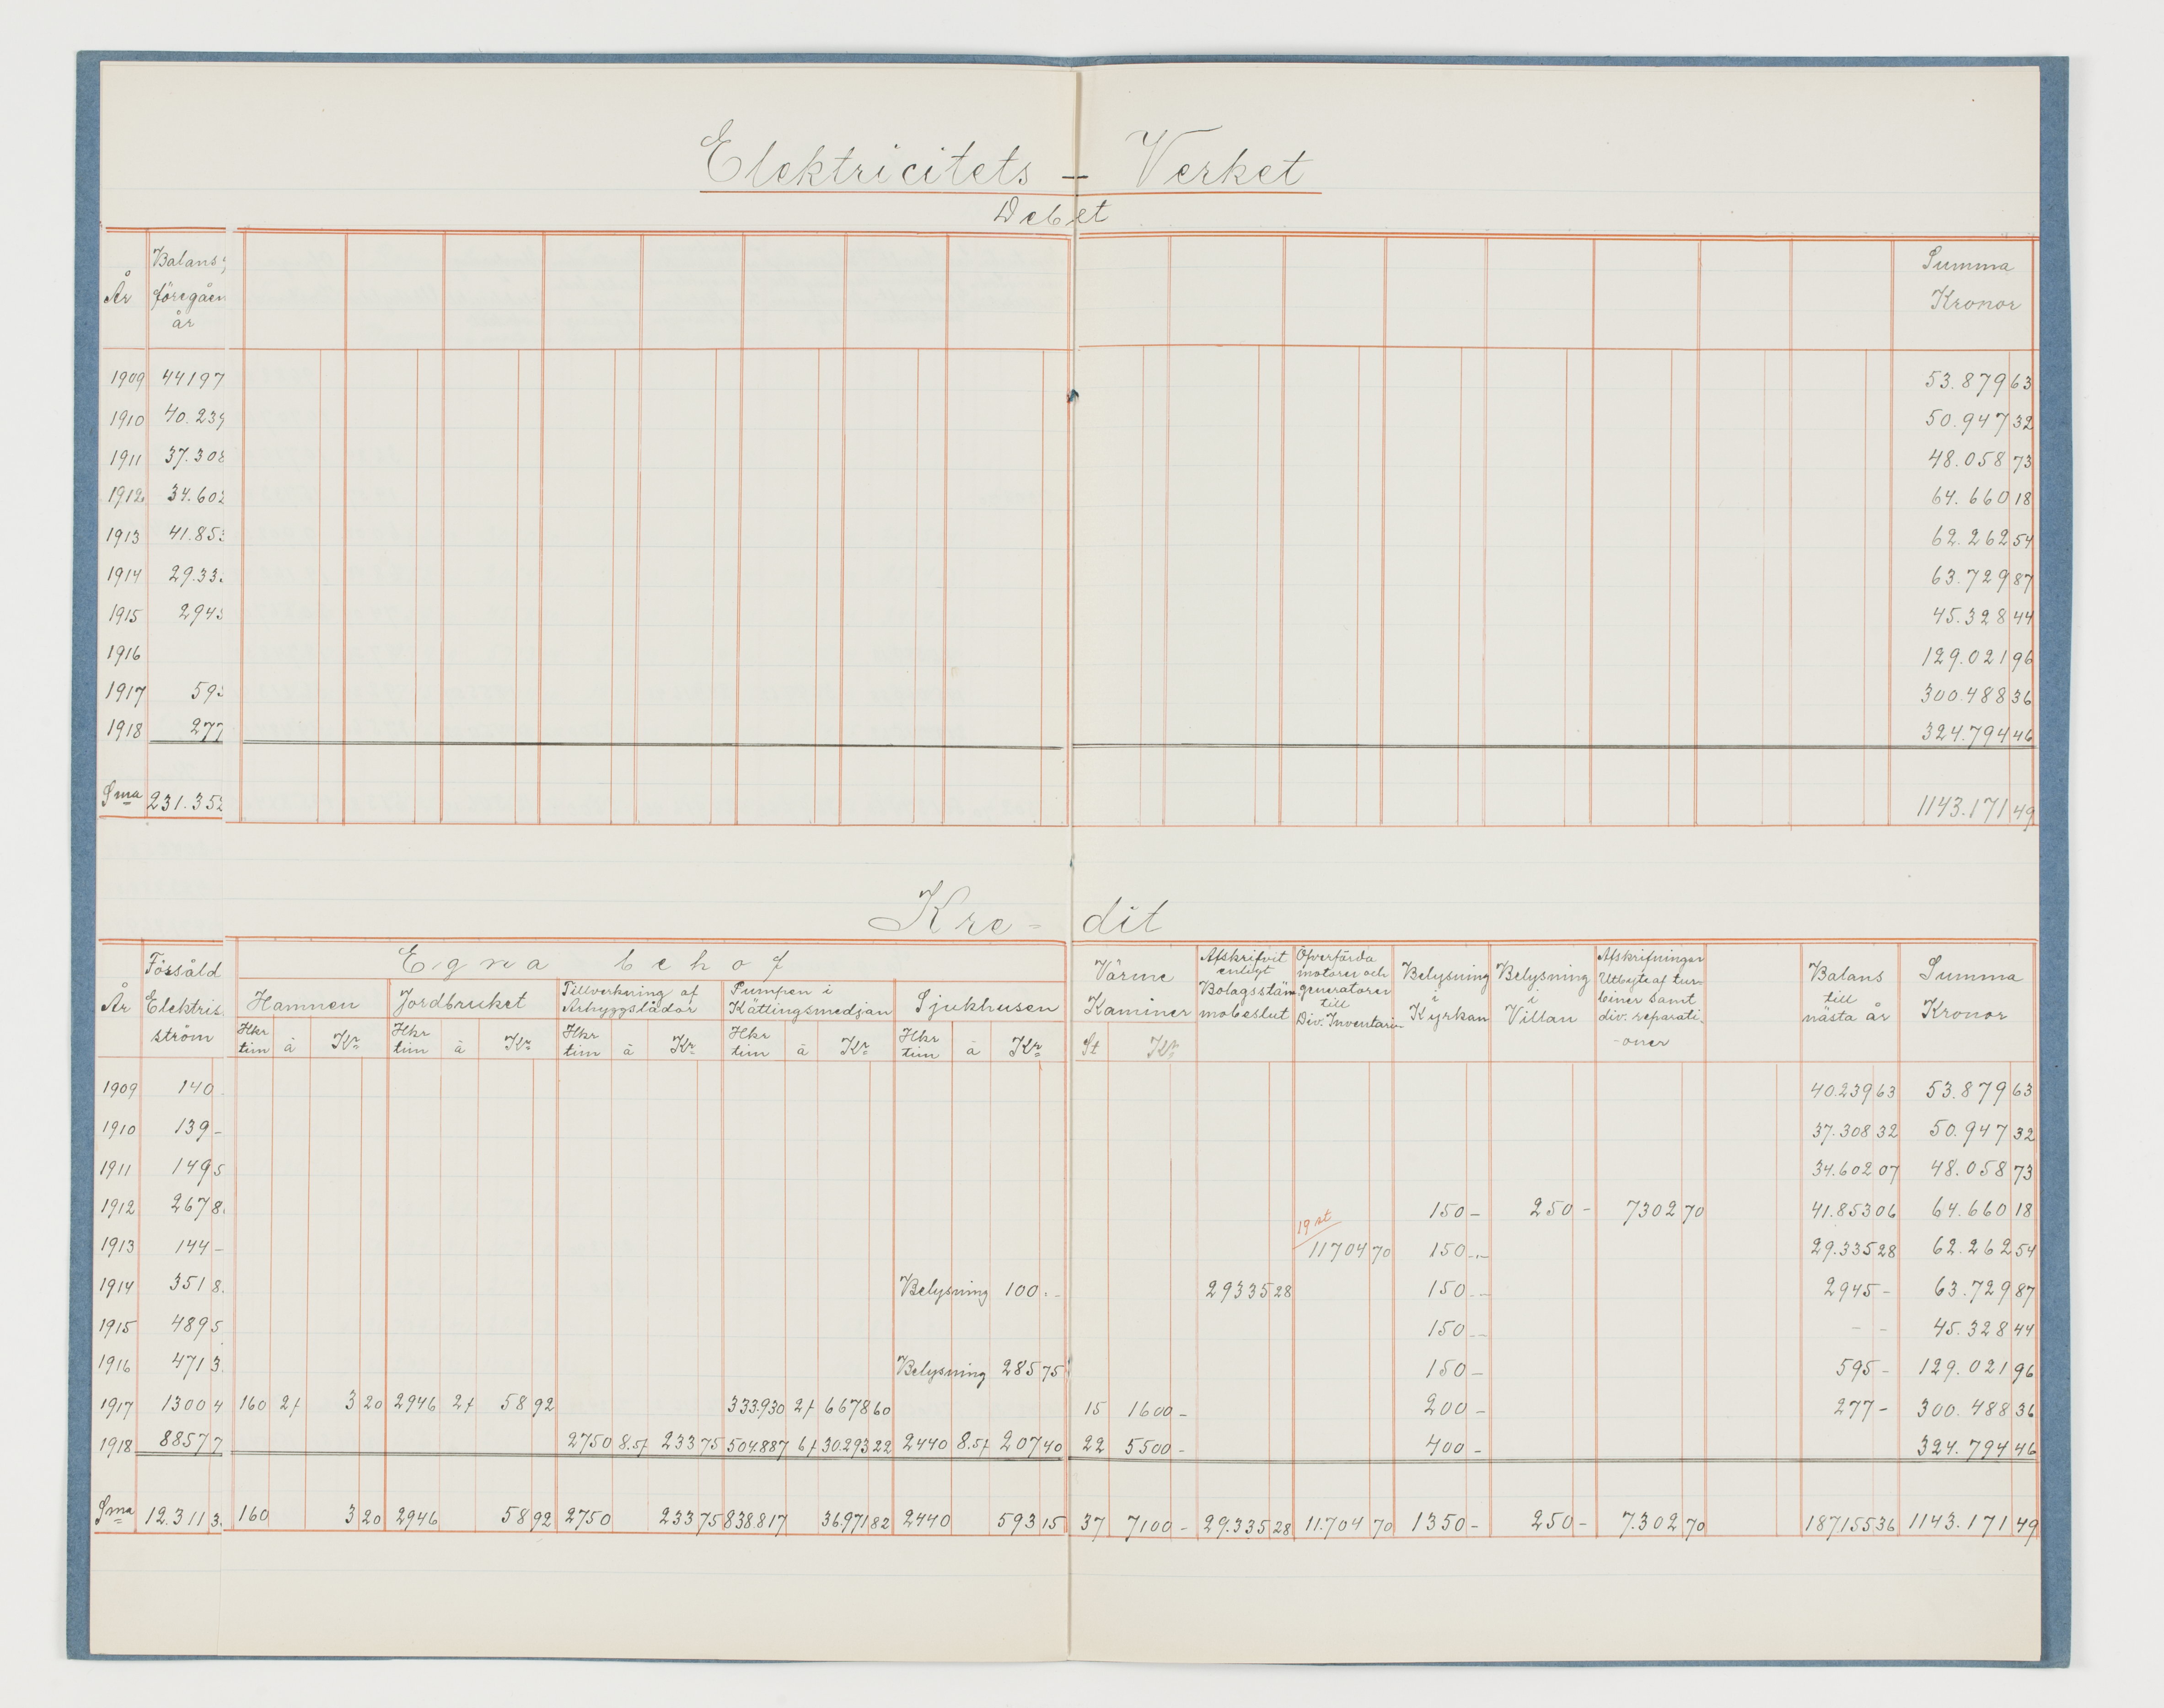 Elektricitets - Verket
Debet
År Balans föregåen år Summa Kronor
1909 44197 53.879 63
1910 40.239 50.947 32
1911 37.308 48.058 73
1912 34.602 64.660 18
1913 41.853 62.262 54
1914 29.33 63.729 87
1915 2945 45.328 44
1916 129.021 96
1917 595 300.488 36
1918 277 324.794 46
Sma 231.352 1143.171 49
Kre- dit
År Försåld Elektris ström
Egna behof
Hamnen Jordbruket Tillverkning af Asbyggslådor Pumpen i Kättingsmedjan Sjukhusen
Hkr tim à Kr Hkr tim à Kr Hkr tim à Kr Hkr tim à Kr Hkr tim à Kr
Värme Kaminer St Kr
Afskrifvit enligt Bolagsstäm mobeslut
Öfverförda motorer och generatorer till Div. Inventari-
Belysning i Kyrkan
Belysning i Villan
Afskrifningar Utbyte af tur- biner samt div. reparati- -oner
Balans till nästa år
Summa Kronor
1909 140 40.239 63 53.879 63
1910 139- 37.308 32 50.947 32
1911 149 5 34.602 07 48.058 73
1912 267 8 150 - 250 - 7302 70 41.853 06 64.660 18
19 st
1913 144 - 11704 70 150 - 29.335 28 62.262 54
1914 351 8. Belysning 100. - 29335 28 150 - 2945 - 63.729 87
1915 489 5 150 - - - 45.328 44
1916 471 3. Belysning 285 75 150 - 595 - 129.021 96
1917 1300 4 160 2f 3 20 2946 2f 58 92 333.930 2f 6678 60 15 1600 - 200 - 277 - 300.488 36
1918 8857 7 2750 8.5f 233 75 504.887 6f 30.293 22 2440 8.5f 207 40 22 5500 - 400 - 324.794 46
Sma 12.311 3. 160 3 20 2946 58 92 2750 233 75 838.817 36.971 82 2440 593 15 37 7100 - 29.335 28 11.704 70 1350 - 250 - 7.302 70 187155 36 1143.171 49